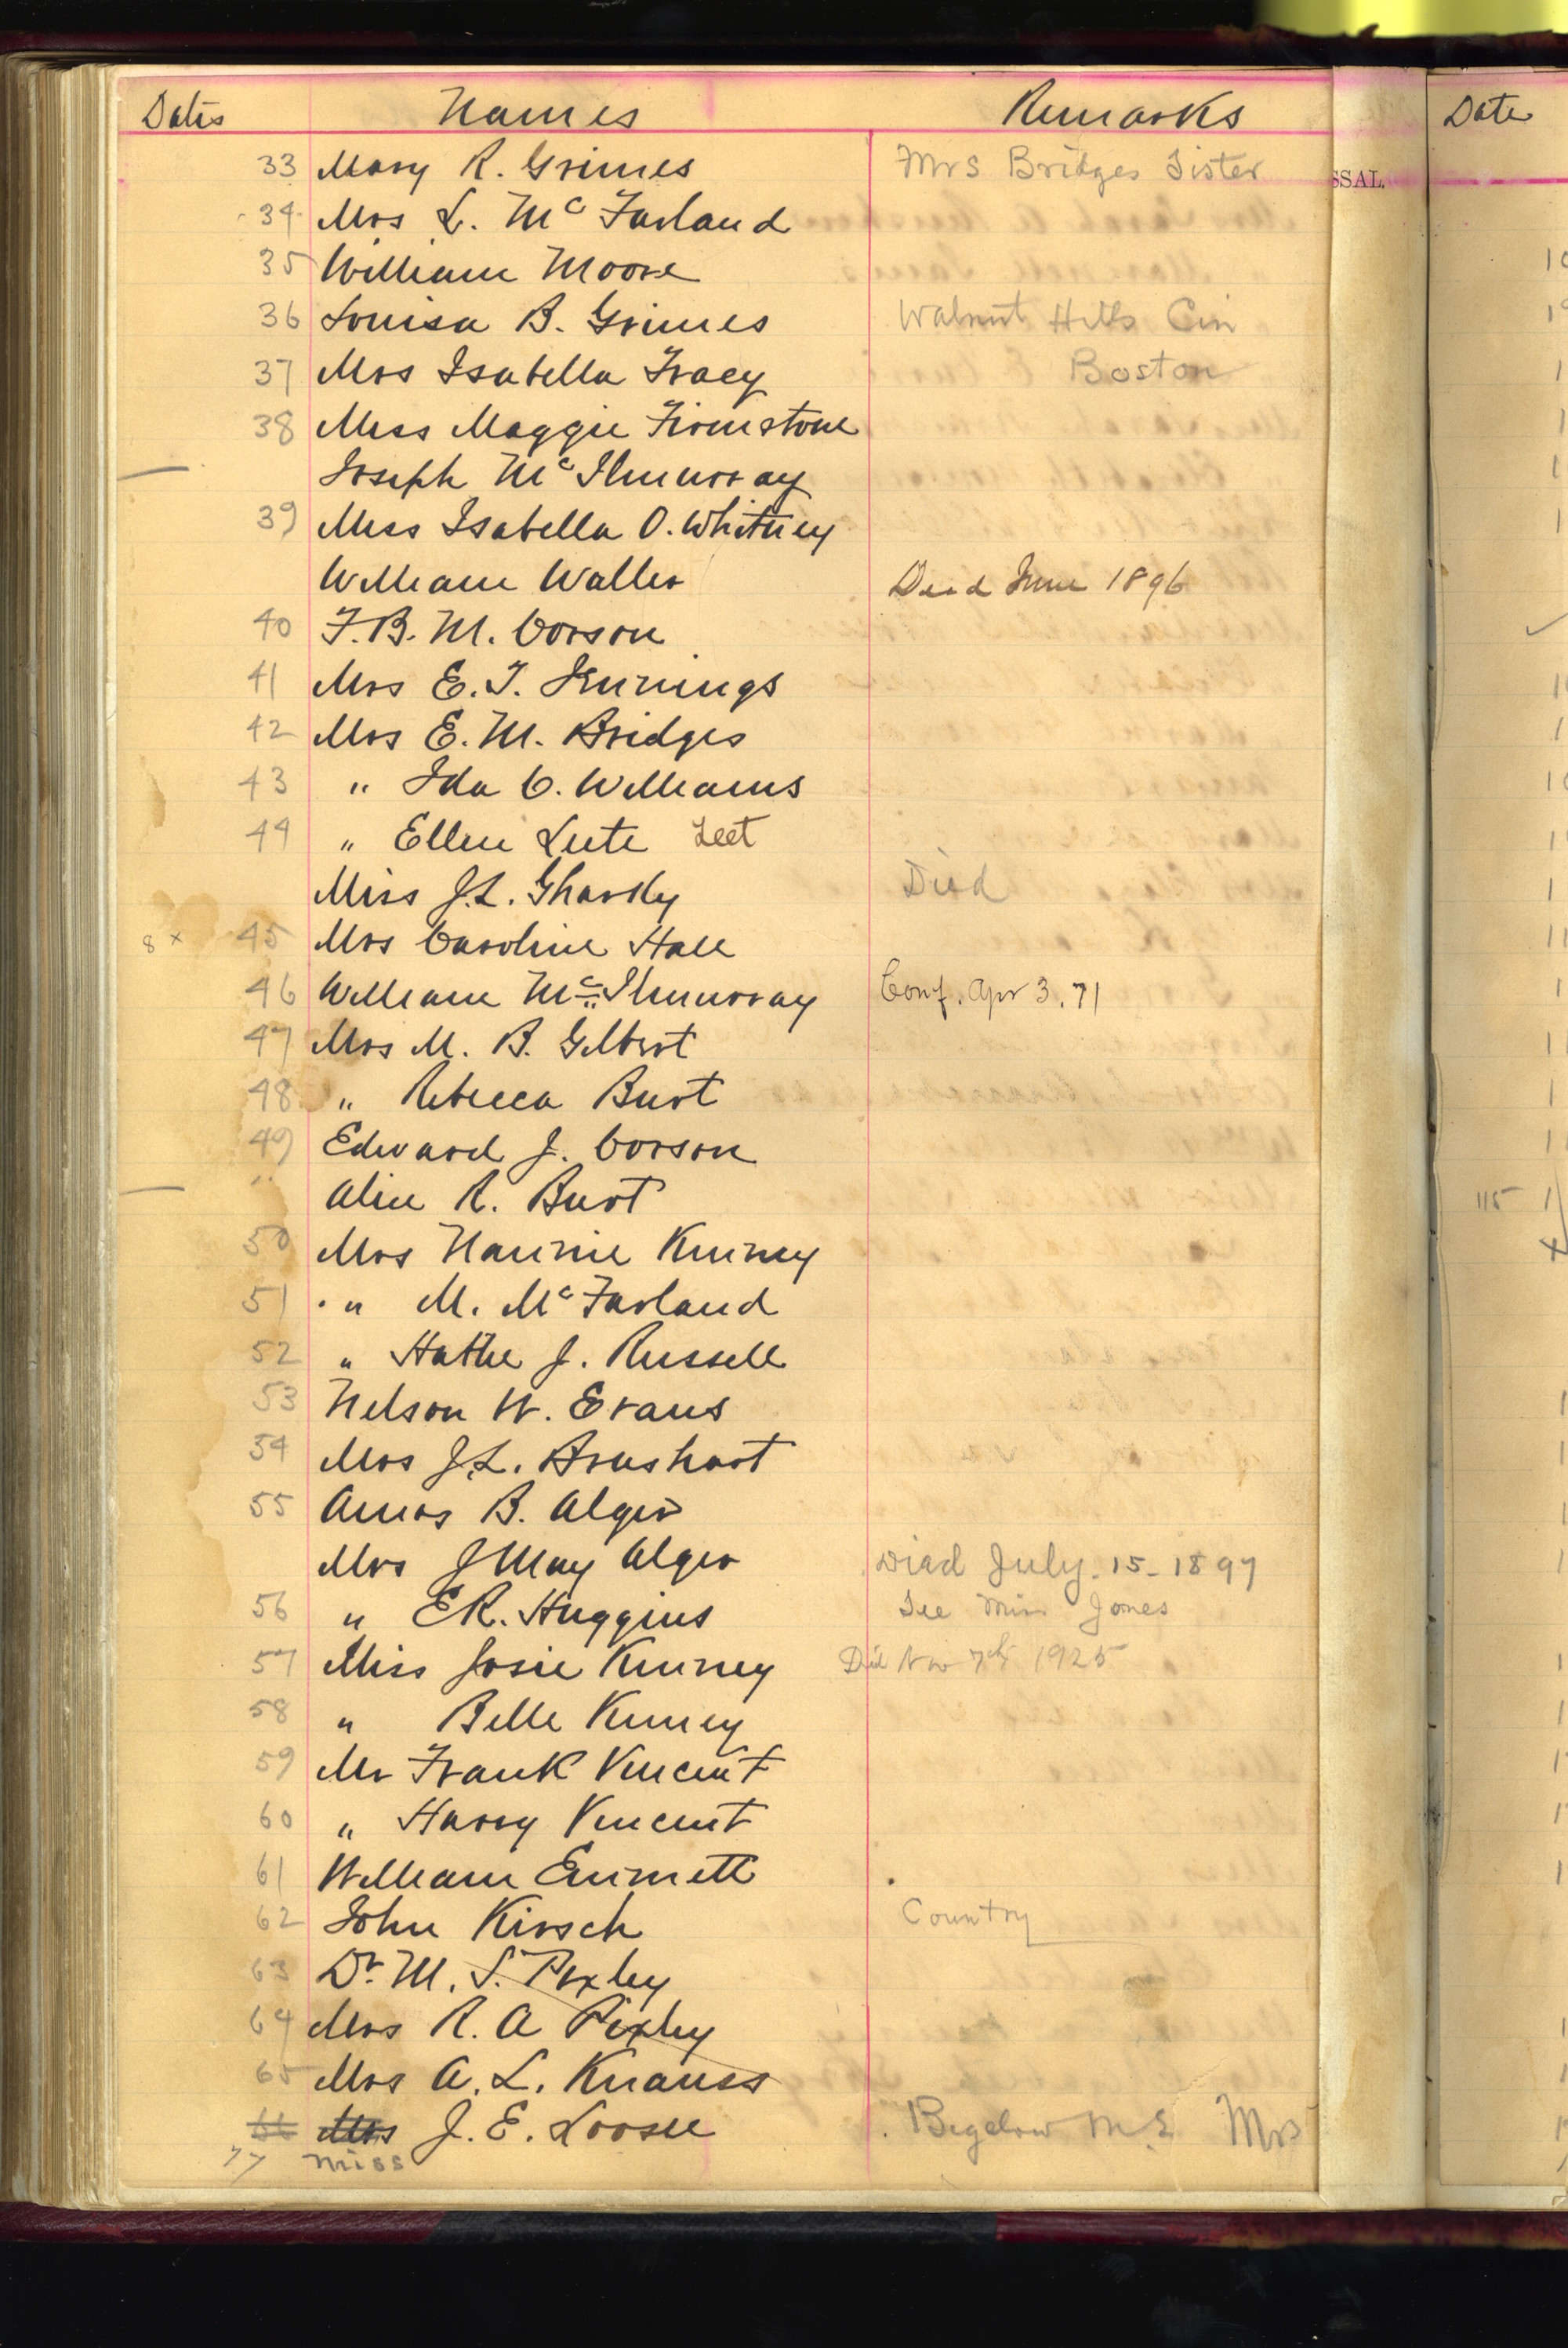 Dates Names Remarks Date
33 Mary R. Grimes Mrs Bridges Sister
SSAL.
34 Mrs L. McFarland
35 William Moore
36 Louisa B. Grimes Walnut Hills Cin
37 Mrs Isabella Tracy Boston
38 Miss Maggie Firmstone
Joseph McIlmurray
39 Miss Isabella O. Whitney
William Waller Died June 1896
40 F. B. M. Corson
41 Mrs E. T. Jennings
42 Mrs E. M. Bridges
43 " Ida C. Williams
44 " Ellen Leete Leet
Miss J. L. Gharky Died
8 x 45 Mrs Caroline Hall
46 William McIlmurray Conf. Apr 3, 71
47 Mrs M. B. Gilbert
48 " Rebecca Burt
49 Edward J. Corson
" Alice R. Burt
115
50 Mrs Nannie Kinney
51 " M. McFarland
52 " Hattie J. Russell
53 Nelson W. Evans
54 Mrs J. L. Brushart
55 Amos B. Alger
Mrs J May Alger Died July. 15 - 1897
56 " E R. Huggins See Miss Jones
57 Miss Josie Kinney Died Nov 7th 1925
58 " Belle Kinney
59 Mr Frank Vincent
60 " Harry Vincent
61 William Emmett
62 John Kirsch Country
63 Dr. M. S. Pixley
64 Mrs R. A Pixley
65 Mrs A. L. Knauss
66 Mrs J. E. Loosee Bigelow M. E Mrs
77 Miss